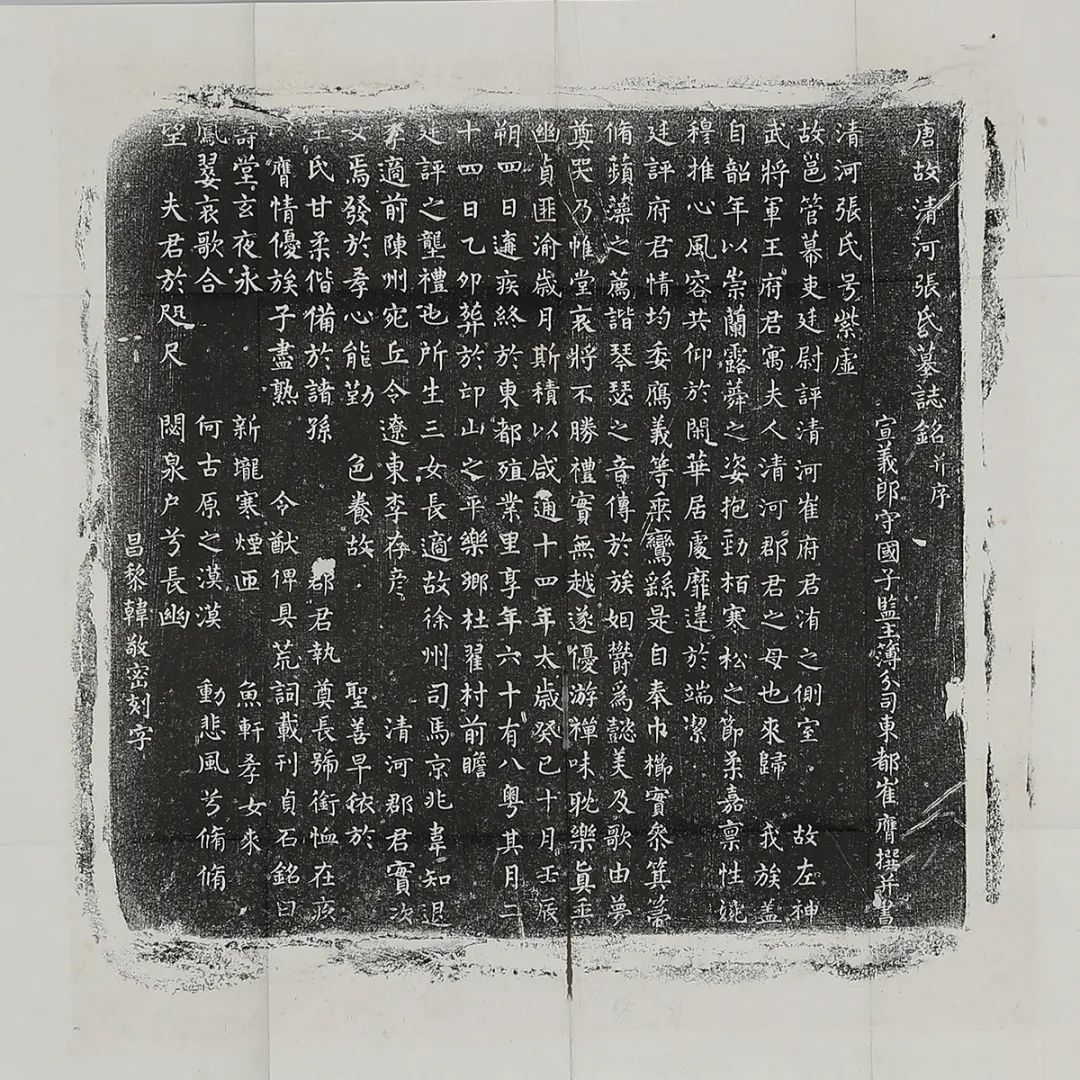 唐故清河張氏墓誌銘并序
宣義郎守國子監主簿分司東都崔膺撰并書
清河張氏号紫虛
故邕管幕吏廷尉評清河崔府君洧之側室 故左神
武將軍王府君寓夫人清河郡君之母也來歸 我族盖
自韶年以崇蘭露蕣之姿抱勁栢寒松之節柔嘉禀性婉
穆推心風容共仰於閑華居處靡違於端潔
廷評府君情均委鴈義等乘鸞繇是自奉巾櫛實叅箕箒
脩蘋藻之薦諧琴瑟之音傳於族姻欝為懿美及歌由夢
奠哭乃帷堂哀將不勝禮實無越遂優游禪味耽樂真乘
幽貞匪渝歲月斯積以咸通十四年太歲癸巳十月壬辰
朔四日遘疾終於東都殖業里享年六十有八粵其月二
十四日乙卯葬於邙山之平樂鄉杜翟村前瞻
廷評之壟禮也所生三女長適故徐州司馬京兆韋知退
季適前陳州宛丘令遼東李存彦 清河郡君實次
女焉發於孝心能勤 色養故 聖善早依於
王氏甘柔偕備於諸孫 郡君執奠長號銜恤在疚
膺情優族子盡熟 令猷俾具荒詞載刊貞石銘曰
壽堂玄夜永 新壠寒煙迊 魚軒孝女來
鳳翣哀歌合 何古原之漠漠 動悲風兮脩脩
望 夫君於咫尺 閟泉户兮長幽
昌黎韓敬密刻字